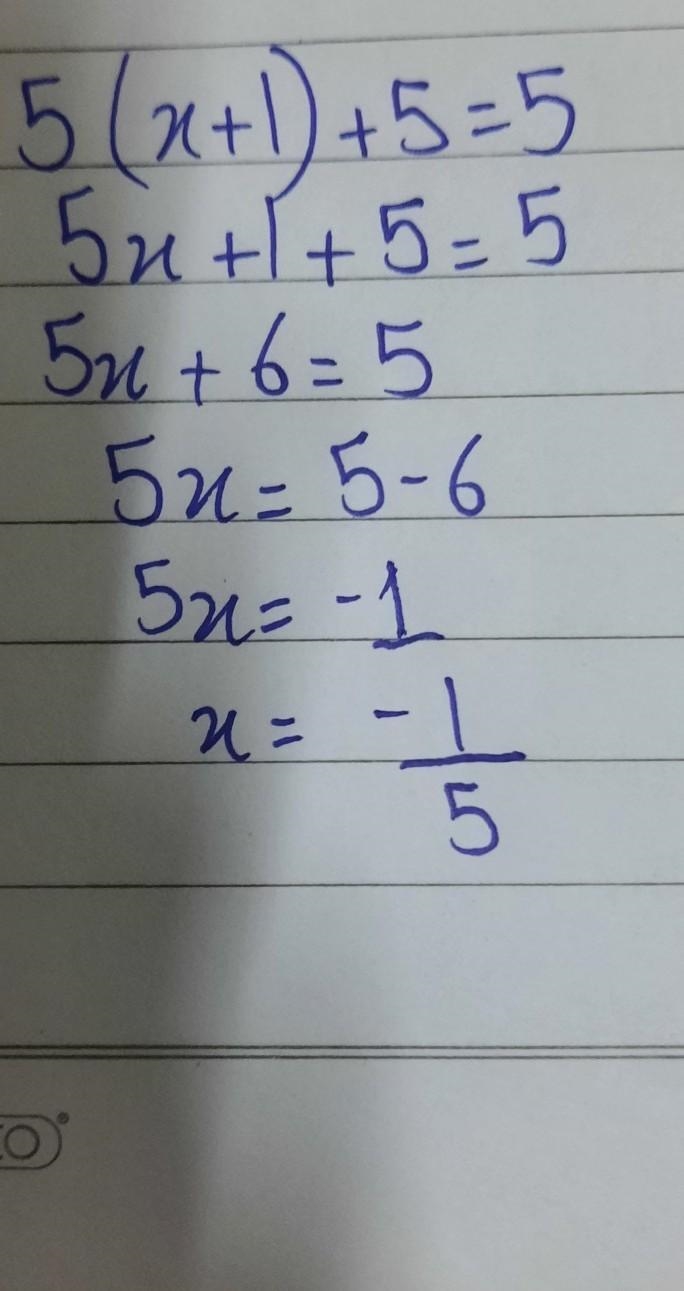 5(x+1)+5=5
5x+1+5=5
5x+6=5
5x=5-6
5x=-1
x=-1/5